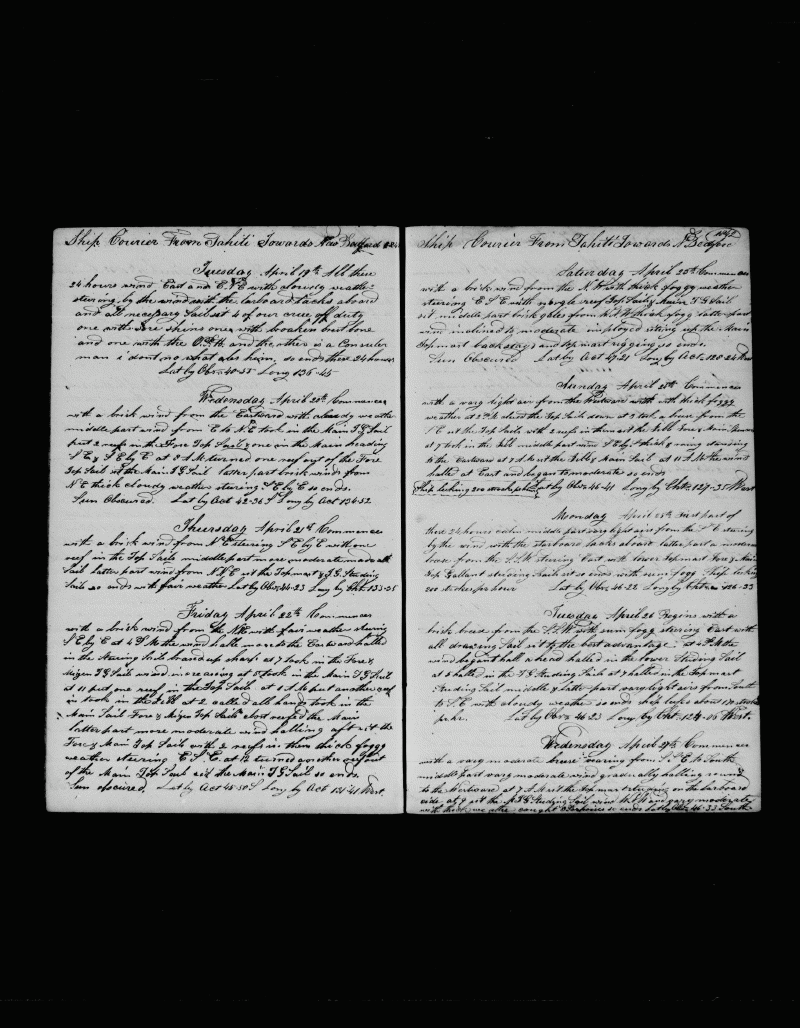 Ship Courier From Tahiti Towards New Bedford
Tuesday April 19th All these
24 hours wind East and E.N.E with cloudy weather
stering by the wind with the larboard tacks aboard
and all necessary Sail set 4 of our crue off duty
one with sore shins one with broaken brest bone
and one with the and the other is a
man i dont no what ales him. so ends these 24 hours
Lat by Obs 40-55 Long 136-45
Wedensday April 20th Commences
with a brisk wind from the Estward with cloudy weather
middle part wind from E to N E took in the Main T G Sail
put 2 reefs in the Fore Top Sail & one in the Main heading
S E by S E by E at 8 A.M turned one reef out of the Fore
Top Sail set the Main T G Sail latter part brisk winds from
N E thick cloudy weather stering S E by E so ends.
Sun Obscured. Lat by Act 42-36 S Long by Act 134-52
Thuersday April 21st Commences
with a brisk wind from N E stering S E by E with one
reef in the Top Sails middle part more moderate made all
Sail latter part wind from N N E set the Topmast & T G Studing
Sails so ends with fair weather Lat by Obs 44-23 Long by Cht. 133-25
Friday April 22th Commences
with a brisk wind from the N E with fair weather stering
S E by E at 4 P M the wind hales more to the Eastward halled
in the Stering Sails braced up sharp at 7 took in the Fore &
Mizen T G Sails wind increasing at took in the Main T G Sail
at 11 put one reef in the Top Sails at 1 A M put another reef
in took in the Jib at 2 called all hands took in the
Main Sail Fore & Mizen Top Sails close reefed the Main
latter part more moderate wind halling aft set the
Fore & Main Top Sails with 2 reefs in them thick foggy
weather Stering E S E. at 12 turned another reef out
of the Main Top Sails set the Main T G Sail so ends
Sun obscured. Lat by Act 45-50 S Long by Act 131-41 West.
Ship Courier From Tahiti Towards N Bedford
Saturday April 23th Commences
with a brisk wind from the N.N.E with thick foggy weather
stering E S E with single reef Top Sails & Main T G Sail
set middle part brisk gales from N E with thick fogg latter part
wind inclined to moderate imployed siting up the Main
Topmast backstays and topmast rigging so ends.
Sun Obscured Lat by Act 47-21 Long by Act. 128-24 West
Sunday April 24th Commences
with a vary light air from the Westward with thick foggy
weather at 2 P.M the Top Sails down at 3 took a brese from the
S E set the Top Sails with 2 reefs in them set the Fore Main
at 7 took in the Jibb middle part wind S E by S thick & rainy standing
to the Eastward at 7 A M set the Jibb & Main Sail at 11 A M the wind
halled at East and began to moderate so ends
Ship leeking 200 strokes per hour Lat by Obs 46-41 Long by Cht. 127-35 West
Moonday April 25th First part of
these 24 hours calm middle part vary light airs from the S E stering
by the wind with the starboard tacks aboard latter part a moderate
brese from the S.S.W stering East with lower Topmast Fore & Main
Top Gallant studing Sails set so ends with sum fogg Ship leeking
200 strokes per hour Lat by Obs 46-22 Long by Cht 126-33
Tuesday April 26 Begins with a
brisk brese from the S.S.W with sum fogg stering East with
all drawing Sail set to the best advantage. at 2 P.M the
wind began to hall ahead halled in the lower Studing Sail
at 3 halled in the T G Studing Sails at 7 halled in the Topmast
Studing Sail middle & latter part vary light airs from South
to S.E with cloudy weather so ends ship leeks about 175 strokes
pehr. Lat by Obs 46-23 Long by Cht. 124-05 West.
Wedensday April 27th Commences
with a vary moderate brese varing from S.S.E to South
middle part vary moderate wind gradually halling round
to the Westward at 7 A M set the Topmast on the larboard
side at 9 set the M T G Studing Sail wind W N W and vary moderate
with thick weather caught 2 Porpoises so ends Lat by Obs 46-33 South